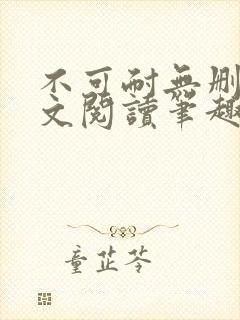 不可耐無刪
文閱讀筆趣
童芷苓